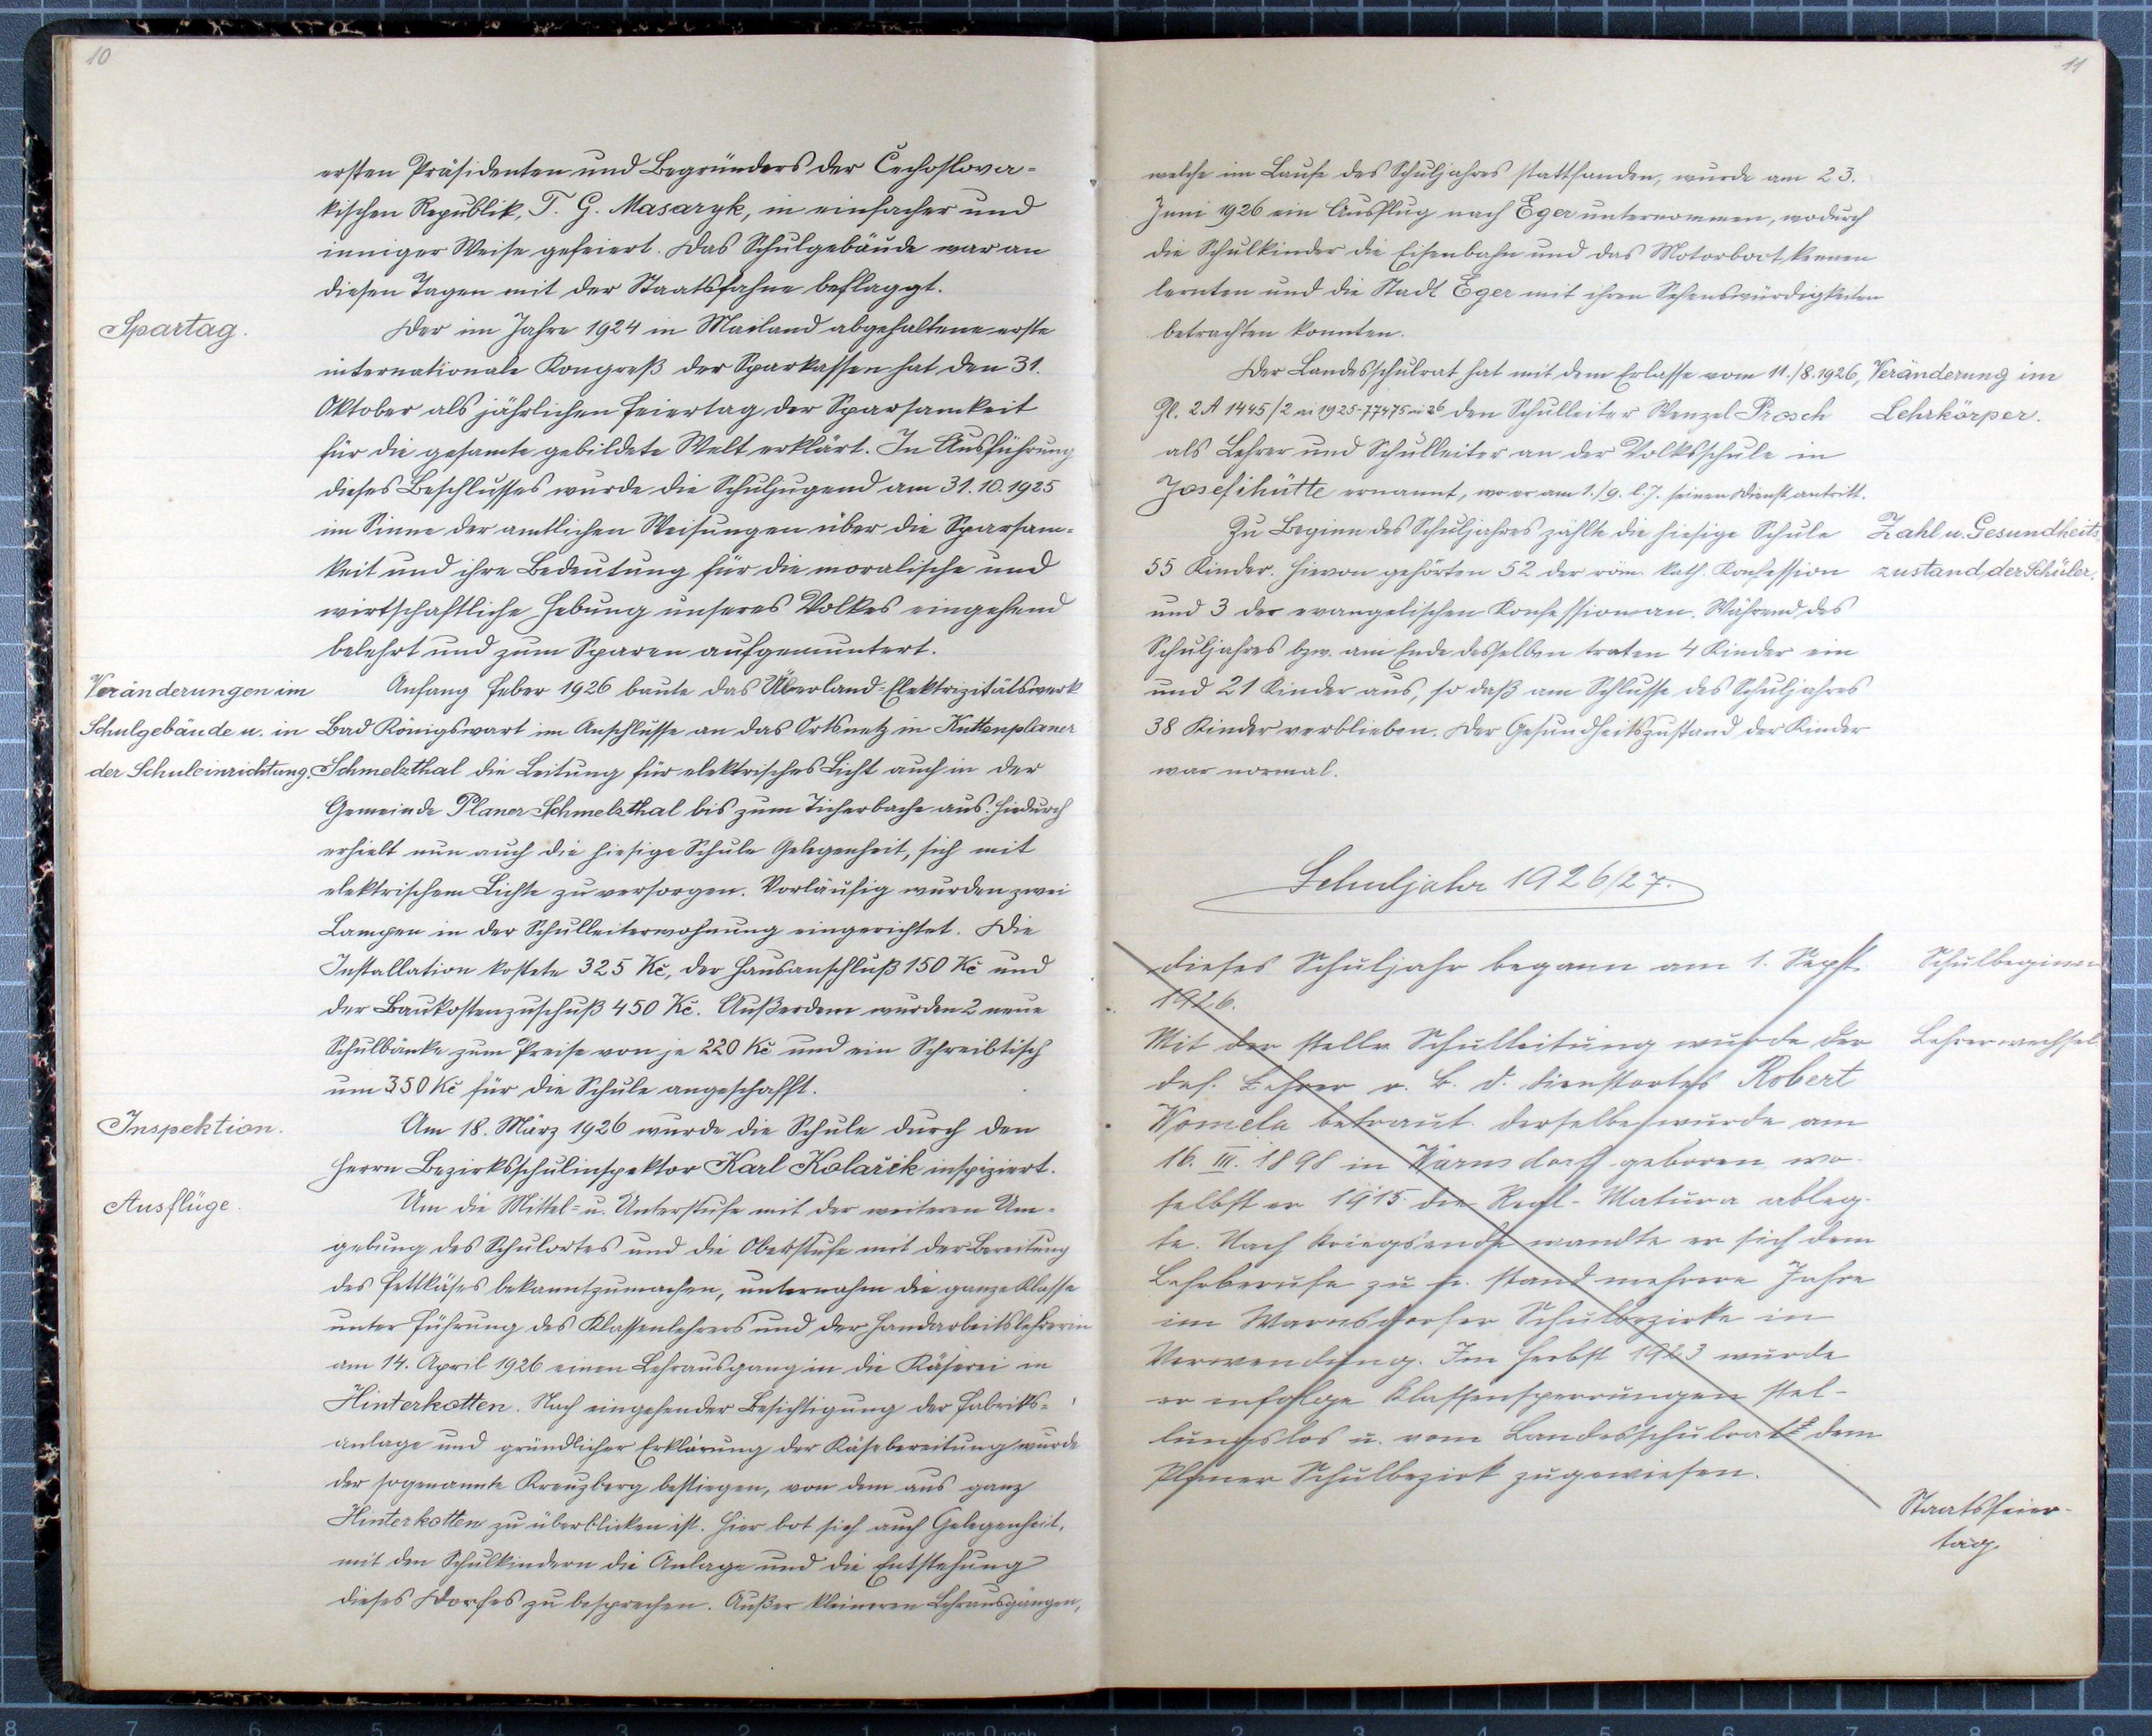 10
ersten Präsidenten und Begründers der Čechoslova-
kischen Republik, T. G. Masaryk, in einfacher und
inniger Weise gefeiert. Das Schulgebäude war an
diesen Tagen mit der Staatsfahne beflaggt.
Spartag.
Der im Jahre 1924 in Mailand abgehaltene erste
internationale Kongreß der Sparkassen hat den 31.
Oktober als jährlichen Feiertag der Sparsamkeit
für die gesamte gebildete Welt erklärt. In Ausführung
dieses Beschlusses wurde die Schuljugend am 31.10.1925
im Sinne der amtlichen Weisungen über die Sparsam-
keit und ihre Bedeutung für die moralische und
wirtschaftliche Hebung unseres Volkes eingehend
belehrt und zum Sparen aufgemuntert.
Veränderungen im
Schulgebäude u. in
der Schuleinrichtung.
Anfang Feber 1926 baute das Überland-Elektrizitätswerk
Bad Königswart im Anschlusse an das Ortsnetz in Kuttenplaner
Schmelzthal die Leitung für elektrisches Licht auch in der
Gemeinde Planer Schmelzthal bis zum Ticherbache aus. Hiedurch
erhielt nun auch die hiesige Schule Gelegenheit, sich mit
elektrischem Lichte zu versorgen. Vorläufig wurden zwei
Lampen in der Schulleiterwohnung eingerichtet. Die
Installation kostete 325 Kč, der Hausanschluß 150 Kč und
der Baukostenzuschuß 450 Kč. Außerdem wurden 2 neue
Schulbänke zum Preise von je 220 Kč und ein Schreibtisch
um 350 Kč für die Schule angeschafft.
Inspektion.
Am 18. März 1926 wurde die Schule durch den
Herrn Bezirksschulinspektor Karl Kolařík inspiziert.
Ausflüge.
Um die Mittel- u. Unterstufe mit der weiteren Um-
gebung des Schulortes und die Oberstufe mit der Bereitung
des Fettkäses bekanntzumachen, unternahm die ganze Klasse
unter Führung des Klassenlehrers und der Handarbeitslehrerin
am 14. April 1926 einen Lehrausgang in die Käserei in
Hinterkotten. Nach eingehender Besichtigung der Fabriks-
anlage und gründlicher Erklärung der Käsebereitung wurde
der sogenannte Kreuzberg bestiegen, von dem aus ganz
Hinterkotten zu überblicken ist. Hier bot sich auch Gelegenheit,
mit den Schulkindern die Anlage und die Entstehung
dieses Dorfes zu besprechen. Außer kleineren Lehrausgängen,
11
welche im Laufe des Schuljahres stattfanden, wurde am 23.
Juni 1926 ein Ausflug nach Eger unternommen, wodurch
die Schulkinder die Eisenbahn und das Motorboot kennen
lernten und die Stadt Eger mit ihren Sehenswürdigkeiten
betrachten konnten.
Der Landesschulrat hat mit dem Erlasse vom 11./8.1926,
Zl. 2A 1445/2 ai 1925-77475 ai 26 den Schulleiter Wenzel Prosch
als Lehrer und Schulleiter an der Volksschule in
Josefihütte ernannt, wo er am 1./9. l. J. seinen Dienst antritt.
Veränderung im
Lehrkörper.
Zu Beginn des Schuljahres zählte die hiesige Schule
55 Kinder. Hievon gehörten 52 der röm. kath. Konfession
und 3 der evangelischen Konfession an. Während des
Schuljahres bzw. am Ende desselben traten 4 Kinder ein
und 21 Kinder aus, so daß am Schlusse des Schuljahres
38 Kinder verblieben. Der Gesundheitszustand der Kinder
war normal.
Zahl u. Gesundheits-
zustand der Schüler.
Schuljahr 1926/27.
Dieses Schuljahr begann am 1. Sept.
1926.
Schulbeginn
Mit der stellv. Schulleitung wurde der
def. Lehrer o. b. d. Dienstortes Robert
Womela betraut. Derselbe wurde am
16. III. 1898 in Warnsdorf geboren, wo-
selbst er 1915 die Real-Matura ableg-
te. Nach Kriegsende wandte er sich dem
Lehrberufe zu u. stand mehrere Jahre
im Warnsdorfer Schulbezirke in
Verwendung. Im Herbst 1923 wurde
er infolge Klassensperrungen stel-
lungslos u. vom Landesschulrate dem
Planer Schulbezirk zugewiesen.
Lehrerwechsel
Staatsfeier-
tag.